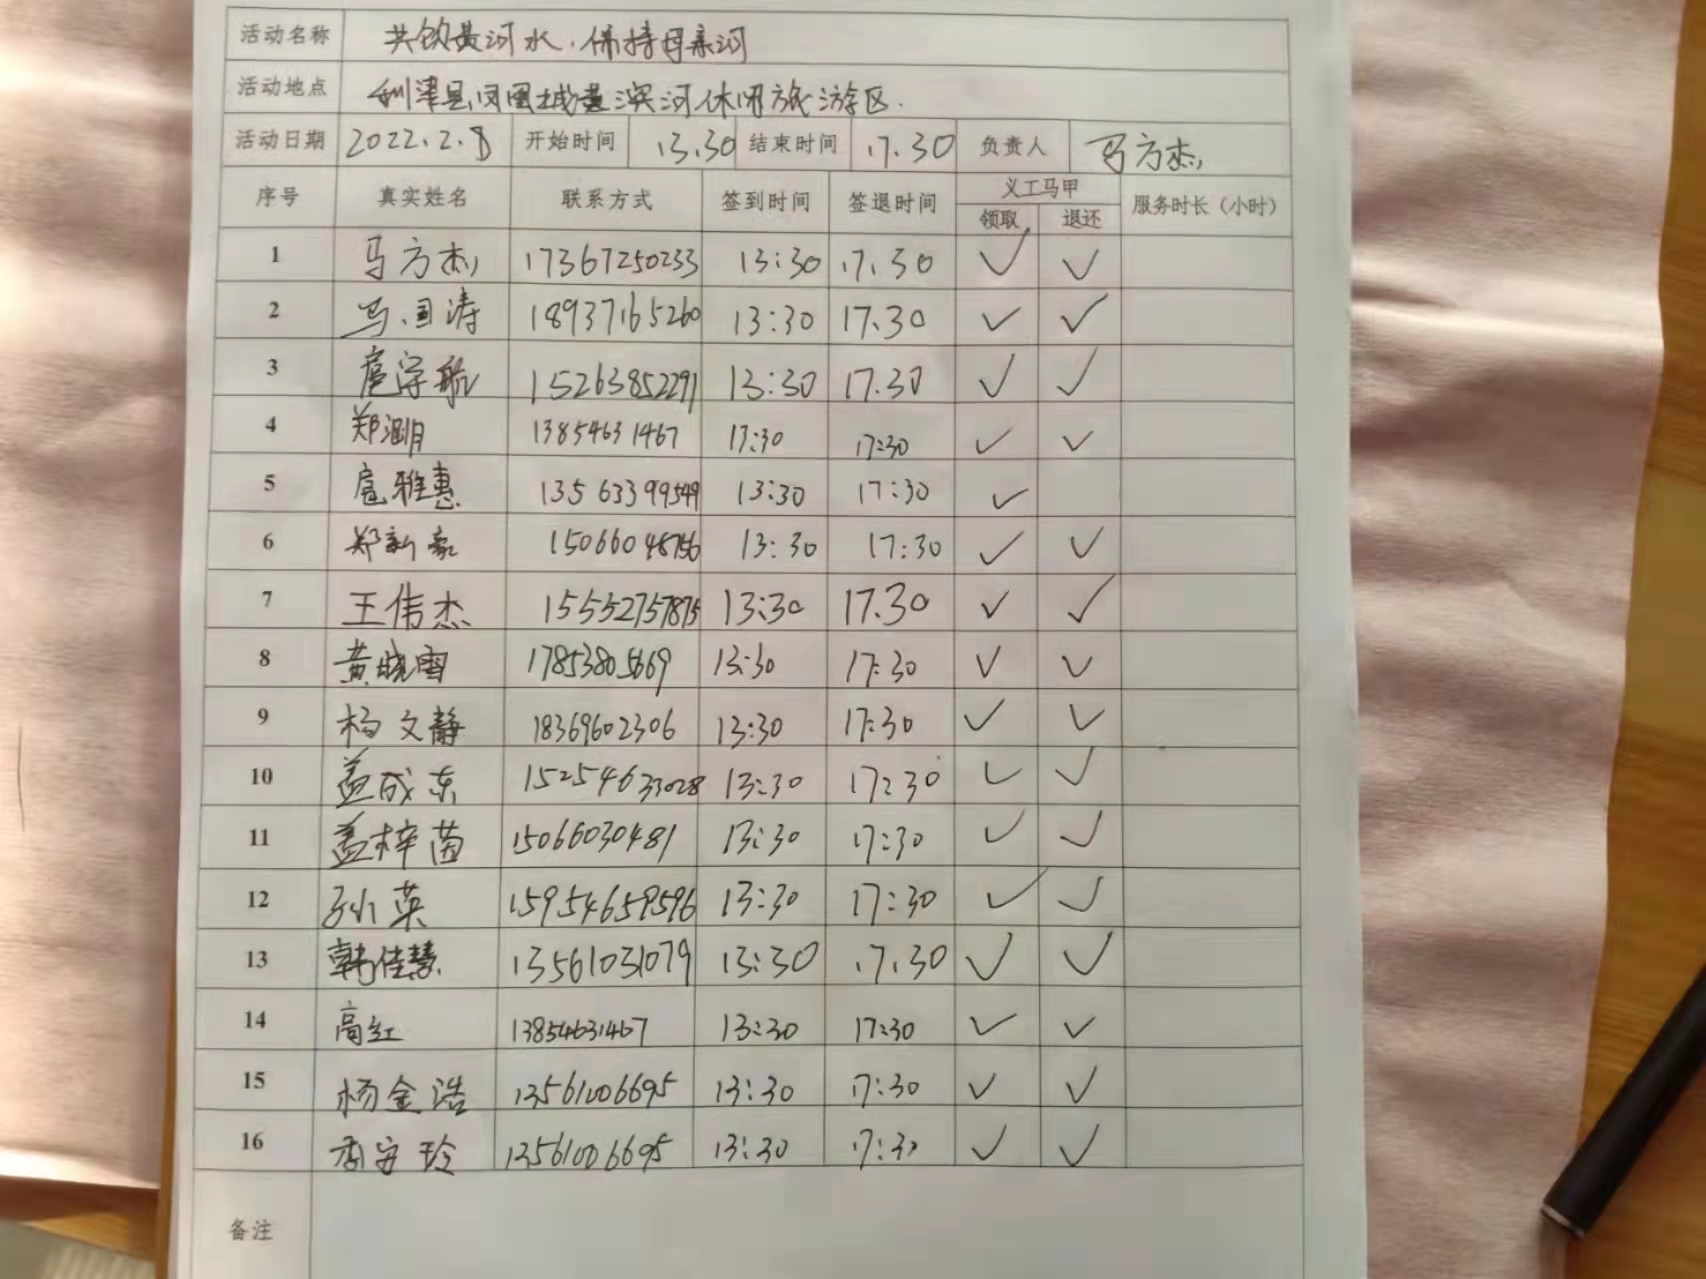 活动名称 共饮黄河水.保持母亲河
活动地点 利津县凤凰城黄滨河休闲旅游区.
活动日期 2022.2.8 开始时间 13.30 结束时间 17.30 负责人 马方杰
序号 真实姓名 联系方式 签到时间 签退时间 义工马甲 服务时长（小时）
领取 退还
1 马方杰 17367250233 13:30 17.30 ✓ ✓
2 马国涛 18937165260 13:30 17.30 ✓ ✓
3 扈宇航 15263852291 13:30 17.30 ✓ ✓
4 郑 13854631467 13:30 17:30 ✓ ✓
5 扈雅惠 13563399549 13:30 17:30 ✓
6 郑新豪 15066048756 13:30 17:30 ✓ ✓
7 王伟杰 15552757875 13:30 17.30 ✓ ✓
8 黄晓雪 17853805669 13:30 17:30 ✓ ✓
9 杨文静 18369602306 13:30 17:30 ✓ ✓
10 盖成东 15254633028 13:30 17:30 ✓ ✓
11 盖梓茵 15066030481 13:30 17:30 ✓ ✓
12 孙英 15954659596 13:30 17:30 ✓ ✓
13 韩佳慧 13561031079 13:30 17.30 ✓ ✓
14 高红 13854631467 13:30 17:30 ✓ ✓
15 杨金浩 13561006695 13:30 17:30 ✓ ✓
16 安玲 13561006695 13:30 17:30 ✓ ✓
备注